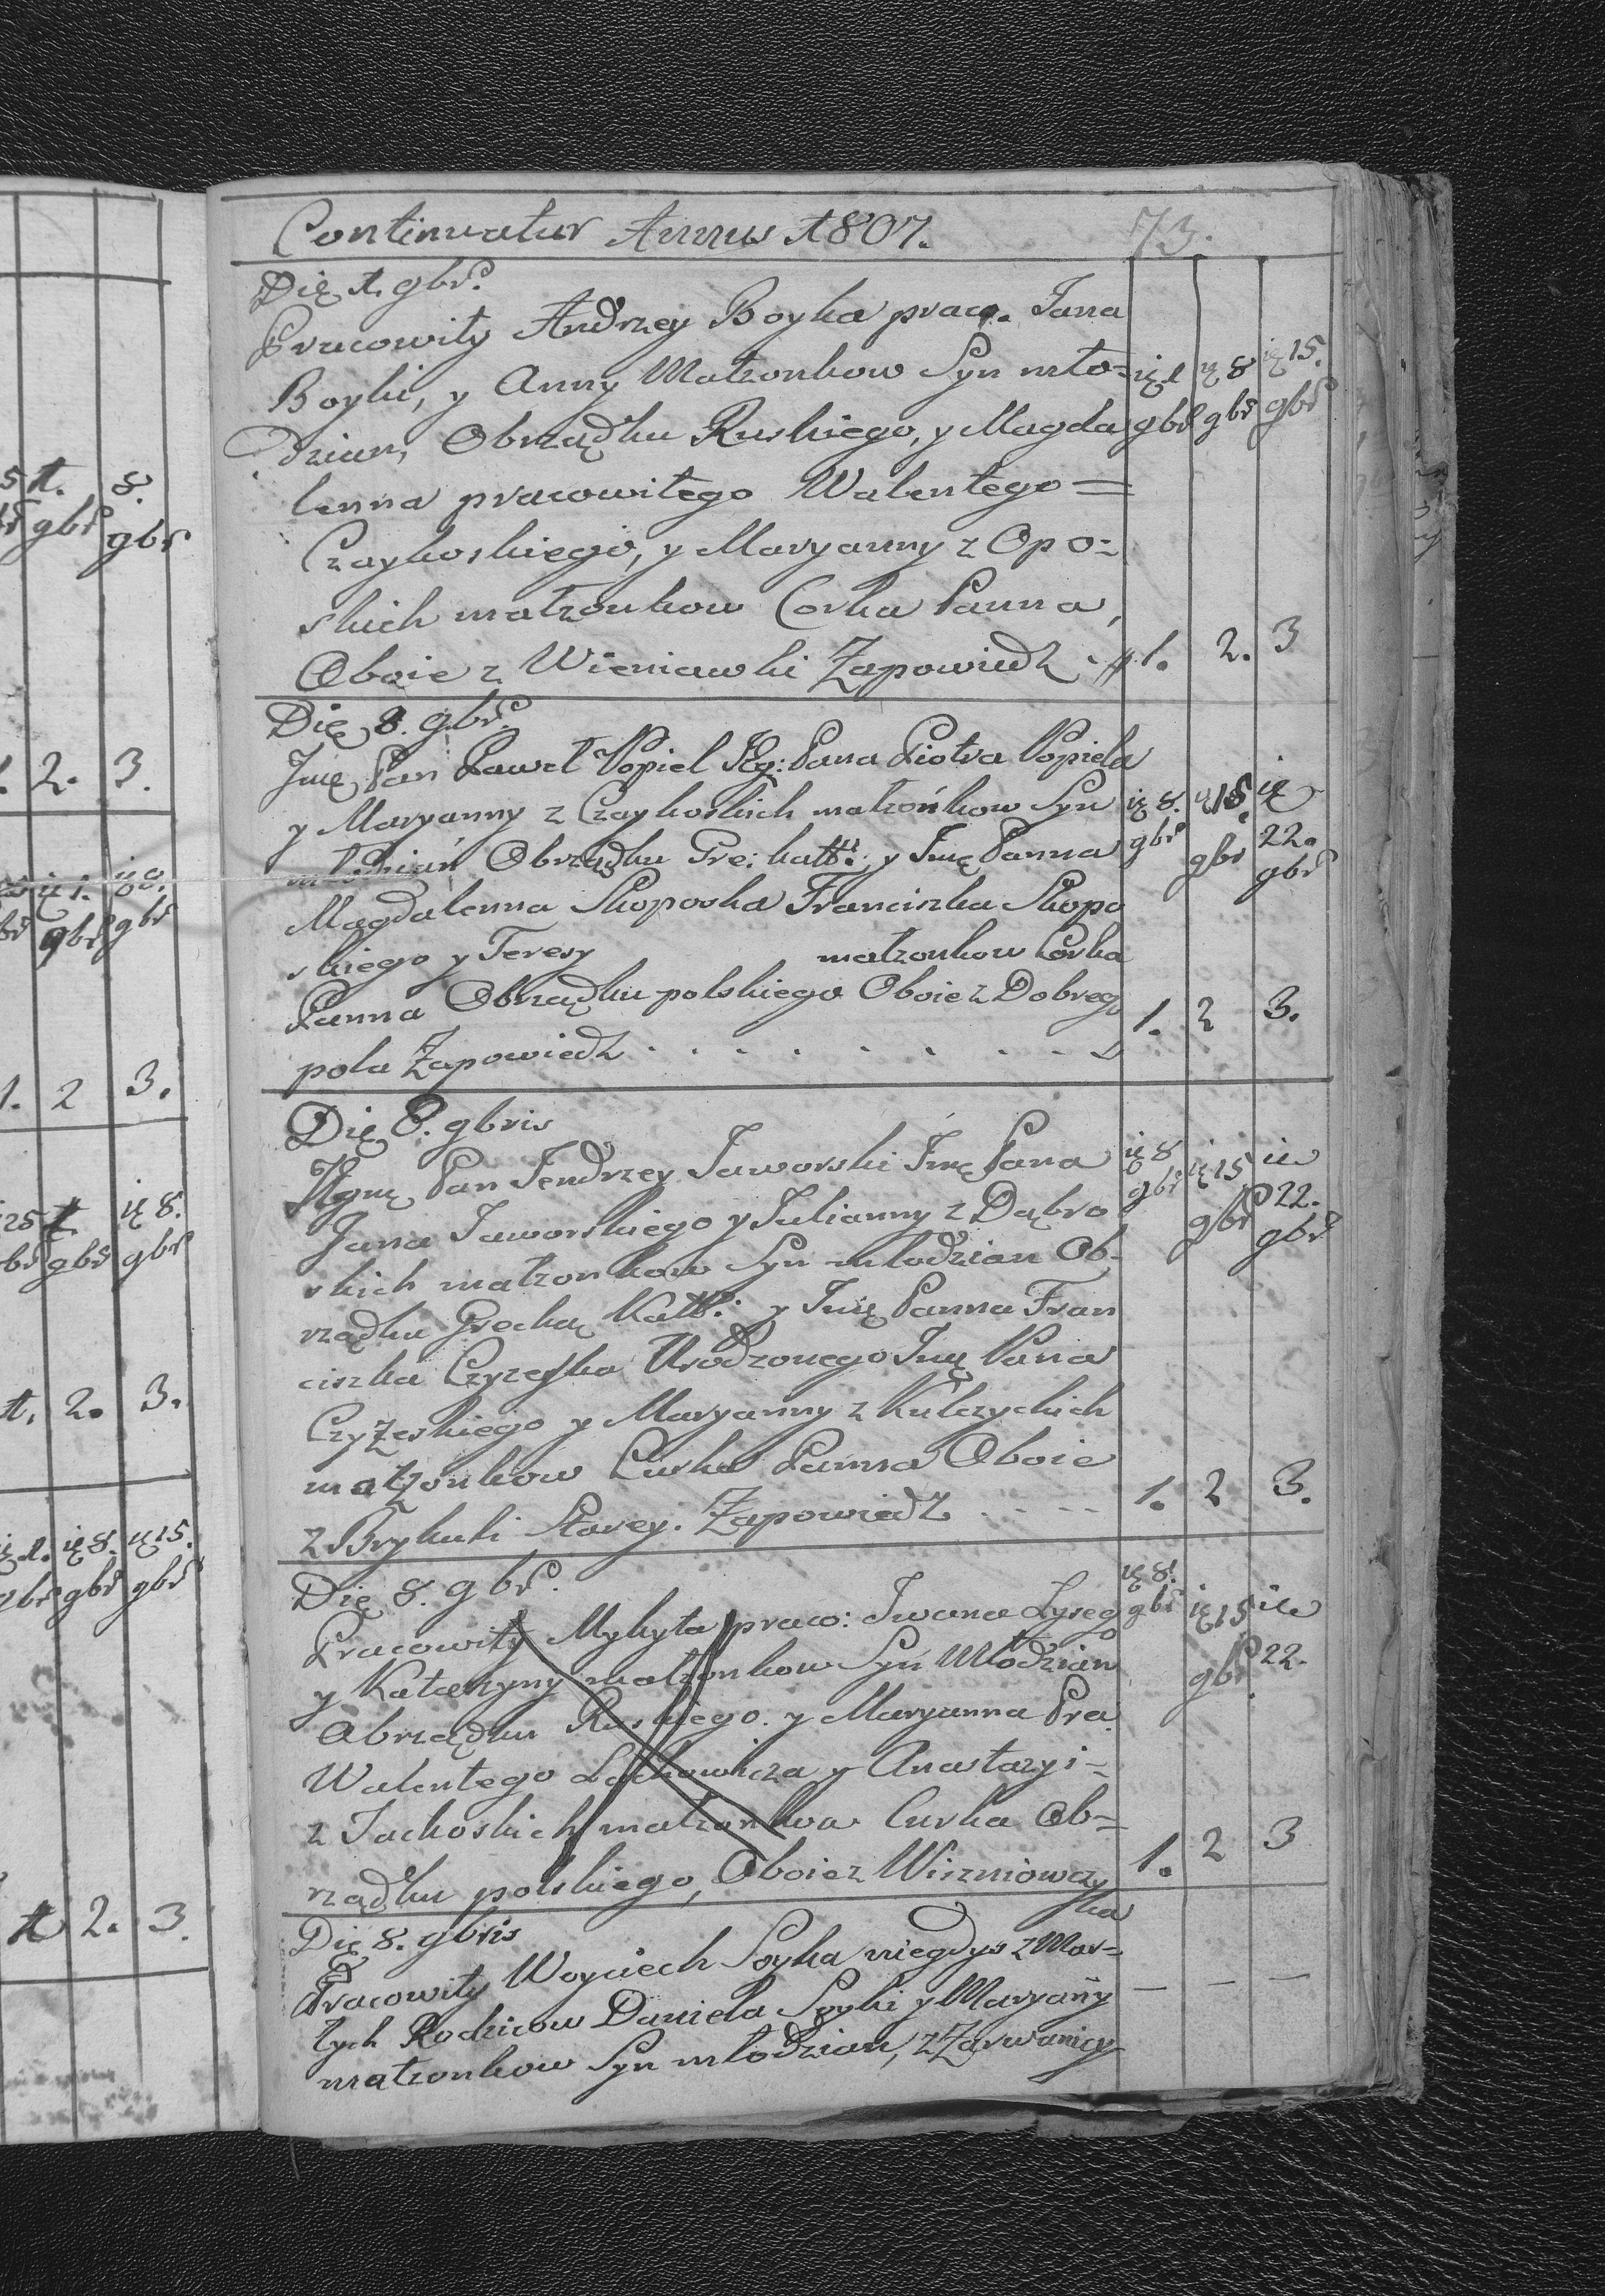 Continuatur Annus 1807. 73.
Dię 1. gbr̃.
Pracowity Andrzey Boyka prac. Jana
Boyki, y Anny Małzonkow Syn mło=
dzian, Obrządku Ruskiego, y Magda
lenna pracowitego Walentego =
Czaykoskiego, y Maryanny z Opo=
skich małzonkow Corka Panna,
Oboie z Wieniawki Zapowiedz
ię 1 gbr̃ ię 8 gbr̃ ię 15. gbr̃
1. 2. 3
Dię 8. gbr̃.
Jmę Pan Paweł Popiel Pana Piotra Popiela
y Maryanny z Czaykoskich małzońkow Syn
młodzian Obrządku Gre: katt: y Jmę Panna
Magdalenna Skoposka Franciszka Skopo
skiego y Teresy małzonkow Corka
Panna Obrządku polskiego Oboie z Dobrego
pola Zapowiedz . . . . . . . .
ię 8. gbr̃ ię 15. gbr̃ ię 22. gbr̃
1. 2 3.
Dię 8. gbris
Pan Jendrzey Jaworski Jmę Pana
Jana Jaworskiego y Julianny z Dąbro
skich małzonkow Syn młodzian Ob-
rządku Grecka Katt: y Jmę Panna Fran
ciszka Czyzeska Urodzonego Jmę Pana
Czyzeskiego y Maryanny z Kulczyckich
małzonkow Curka Panna Oboie
z Brykuli Starey. Zapowiedz . . . .
ię 8 gbr̃ ię 15 gbr̃ ię 22. gbr̃
1. 2 3.
Dię 8. gbr̃.
Pracowity Mykyta praco: Iwana Łysego
y Katarzyny małzonkow Syn Młodzian
Obrządku Ruskiego. y Maryanna Pra.
Walentego Lachowicza y Anastazyi=
z Jachoskich małzonkow Curka Ob=
rządku polskiego, Oboie z Wiszniowczy
ka
ię 8. gbr̃ ię 15 gbr̃ ię 22.
1. 2 3
Dię 8. gbris
Pracowity Woyciech Soyka niegdys z Mar=
łych Rodzicow Daniela Soyki y Maryañy
małzonkow Syn młodzian, z Zarwanicy
— — —
5 1. 8.
gbr̃ gbr̃
2. 3.
ię 1. ię 8.
gbr̃ gbr̃
1. 2 3.
25 1 ię 8.
gbr̃ gbr̃
1. 2. 3.
ię 1. ię 8. ię 15.
gbr̃ gbr̃ gbr̃
1 2. 3.